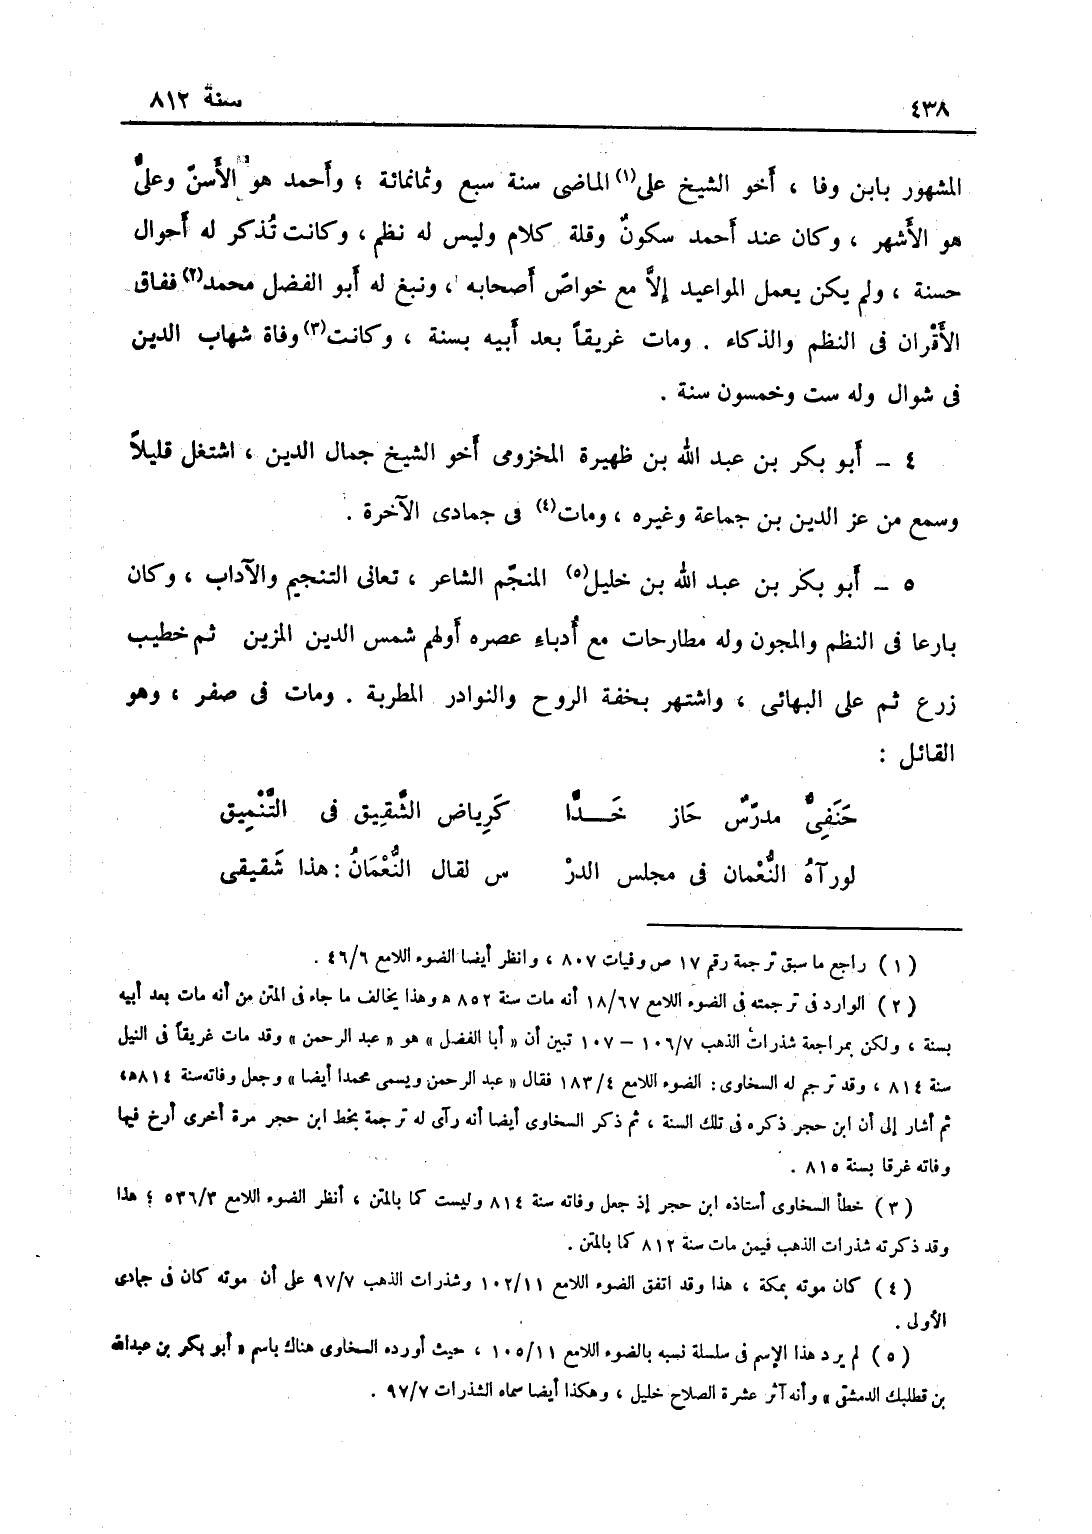 ٤٣٨
سنة ٨١٢
المشهور بابن وفا ، أخو الشيخ على(١) الماضى سنة سبع وثمانمائة ؛ وأحمد هو الأسنّ وعلىٌّ
هو الأشهر ، وكان عند أحمد سكونٌ وقلة كلام وليس له نظم ، وكانت تُذكر له أحوال
حسنة ، ولم يكن يعمل المواعيد إلاَّ مع خواصّ أصحابه ، ونبغ له أبو الفضل محمد(٢) ففاق
الأَقْران فى النظم والذكاء . ومات غريقاً بعد أبيه بسنة ، وكانت(٣) وفاة شهاب الدين
فى شوال وله ست وخمسون سنة .
٤ – أبو بكر بن عبد الله بن ظهيرة المخزومى أخو الشيخ جمال الدين ، اشتغل قليلاً
وسمع من عز الدين بن جماعة وغيره ، ومات(٤) فى جمادى الآخرة .
٥ – أبو بكر بن عبد الله بن خليل(٥) المنجّم الشاعر ، تعانى التنجيم والآداب ، وكان
بارعا فى النظم والمجون وله مطارحات مع أُدباء عصره أولهم شمس الدين المزين ثم خطيب
زرع ثم على البهائى ، واشتهر بخفة الروح والنوادر المطربة . ومات فى صفر ، وهو
القائل :
حَنَفِىٌّ مدرّسٌ حاز خَـــدًّا كَرِياض الشَّقِيق فى التَّنْمِيق
لورآهُ النُّعْمان فى مجلس الدرْ س لقال النُّعْمَانُ : هذا شَقيقى
(١) راجع ما سبق ترجمة رقم ١٧ ص وفيات ٨٠٧ ، وانظر أيضا الضوء اللامع ٤٦/٦ .
(٢) الوارد فى ترجمته فى الضوء اللامع ١٨/٦٧ أنه مات سنة ٨٥٢ ه وهذا يخالف ما جاء فى المتن من أنه مات بعد أبيه
بسنة ، ولكن بمراجعة شذرات الذهب ١٠٦/٧ – ١٠٧ تبين أن « أبا الفضل » هو « عبد الرحمن » وقد مات غريقاً فى النيل
سنة ٨١٤ ، وقد ترجم له السخاوى : الضوء اللامع ١٨٣/٤ فقال « عبد الرحمن ويسمى محمدا أيضا » وجعل وفاته سنة ٨١٤ ه،
ثم أشار إلى أن ابن حجر ذكره فى تلك السنة ، ثم ذكر السخاوى أيضا أنه رآى له ترجمة بخط ابن حجر مرة أخرى أرخ فيها
وفاته غرقا بسنة ٨١٥ .
(٣) خطأ السخاوى أستاذه ابن حجر إذ جعل وفاته سنة ٨١٤ وليست كما بالمتن ، أنظر الضوء اللامع ٥٣٦/٣ ؛ هذا
وقد ذكرته شذرات الذهب فيمن مات سنة ٨١٢ كما بالمتن .
(٤) كان موته بمكة ، هذا وقد اتفق الضوء اللامع ١٠٢/١١ وشذرات الذهب ٩٧/٧ على أن موته كان فى جمادى
الأولى .
(٥) لم يرد هذا الإسم فى سلسلة نسبه بالضوء اللامع ١٠٥/١١ ، حيث أورده السخاوى هناك باسم « أبو بكر بن عبدالله
بن قطلبك الدمشقى » وأنه آثر عشرة الصلاح خليل ، وهكذا أيضا سماه الشذرات ٩٧/٧ .